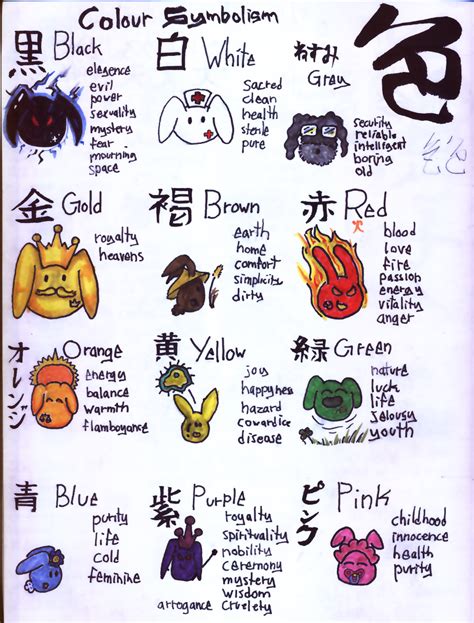 Colour Symbolism
色
色
黒 Black
elegence
evil
power
sexuality
mystery
fear
mourning
space
白 White
Sacred
clean
health
sterile
pure
ねずみ
Gray
security
reliable
intelligent
boring
old
金 Gold
royalty
heavens
褐 Brown
earth
home
comfort
simplicity
dirty
赤 Red
blood
love
fire
passion
energy
vitality
anger
オレンジ
Orange
energy
balance
warmth
flamboyance
黄 Yellow
joy
happyness
hazard
cowardice
disease
緑 Green
nature
luck
life
jelousy
youth
青 Blue
purity
life
cold
feminine
紫 Purple
royalty
spirituality
nobility
ceremony
mystery
wisdom
arrogance cruelety
ピンク
Pink
childhood
innocence
health
purity